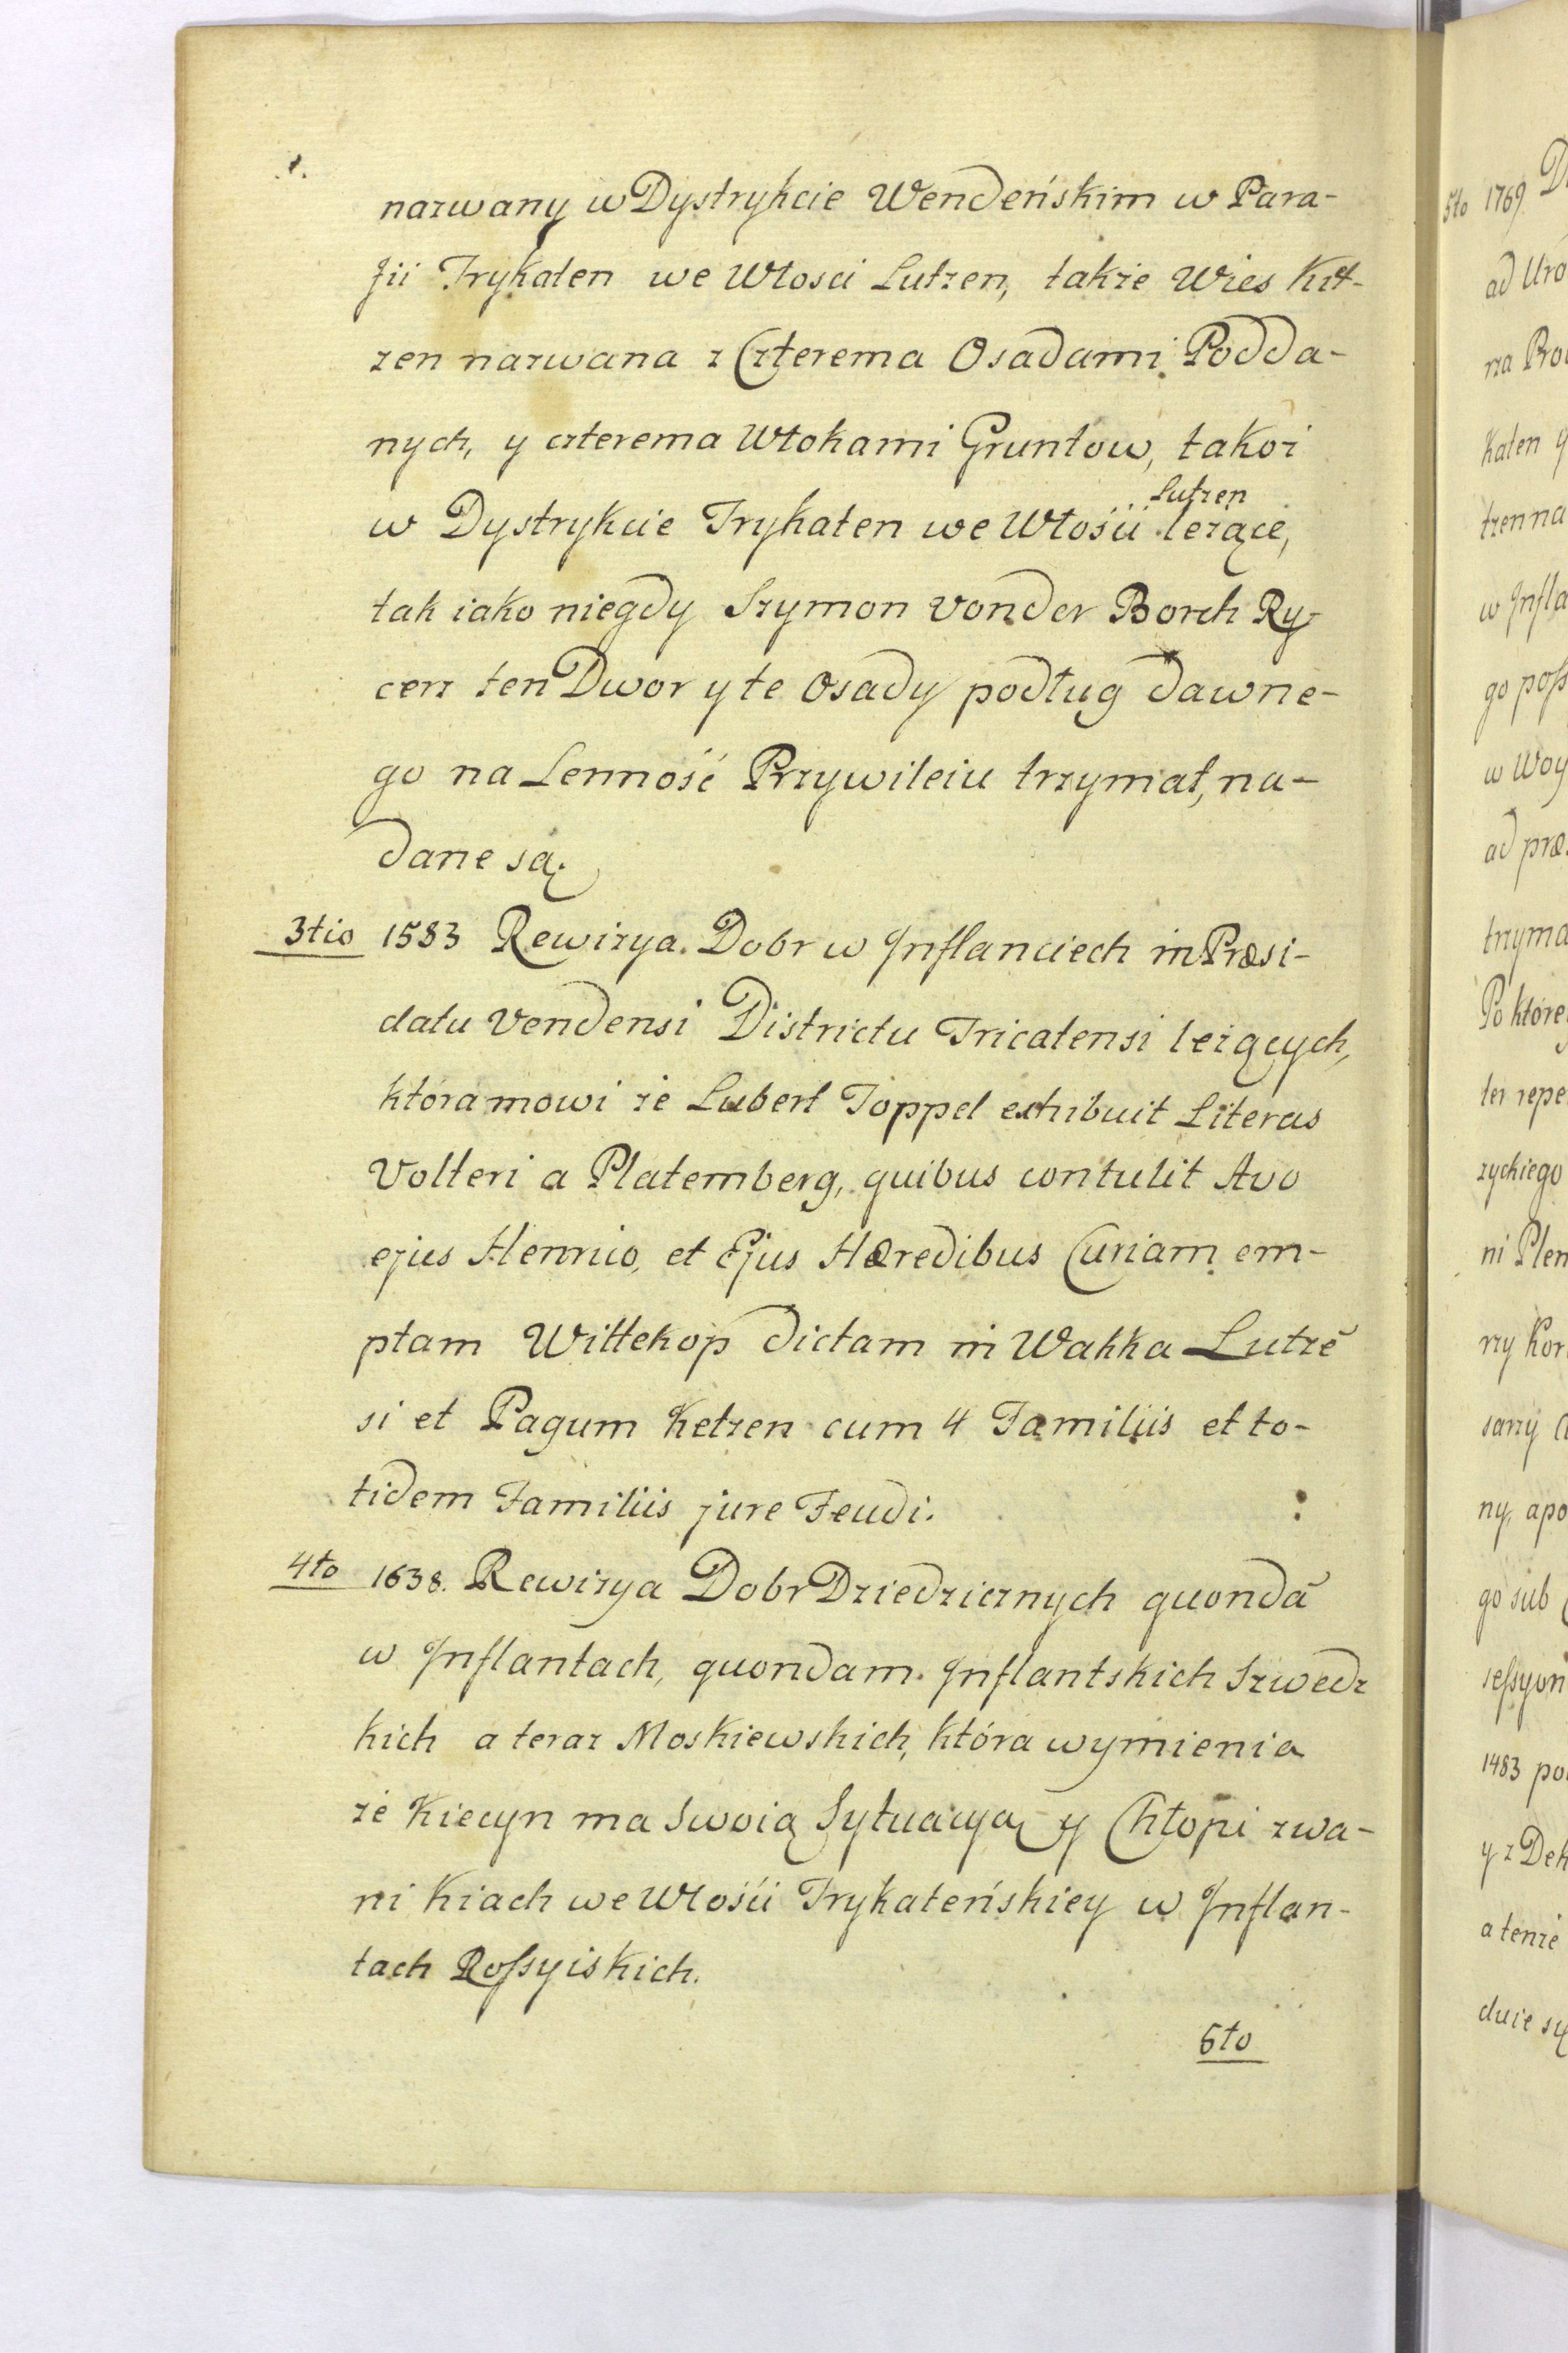 nazwany w Dystrykcie Wendeńskim w Para-
fii Trykaten we Włosci Lutzen, także Wies Kit-
zen nazwana z Czterema Osadami Podda-
nych, y czterema Włokami Gruntow, takoż
Lutzen
w Dystrykcie Trykaten we Włości leżące,
tak iako niegdy Szymon von der Borch Ry-
cerz ten Dwor y te Osady podług dawne-
go na Lenność Przywileiu trzymał, na-
dane są.
3tio 1583 Rewizya Dobr w Inflanciech in Præsi-
datu Vendensi Districtu Tricatensi leżących,
która mowi że Lubert Toppel exhibuit Literas
Volteri a Platemberg, quibus contulit Avo
ejus Henrico, et Ejus Hæredibus Curiam em-
ptam Wittekop dictam in Wakka Lutzẽ
si et Pagum Ketzen cum 4 Familiis et to-
tidem Familiis jure Feudi.
4to 1638. Rewizya Dobr Dziedzicznych quondã
w Inflantach, quondam Inflantskich Szwedz
kich a teraz Moskiewskich, która wymienia
że Kiecyn ma Swoią Sytuacyą y Chłopi zwa-
ni Kiach we Włości Trykateńskiey w Inflan-
tach Rossyiskich.
5to
5to 1769
ad
rza
katen
tzen na
w Infla
go poss
w Woy
ad præ
trzyma
Po które
ter repe
zyckiego
ni Plen
rzy Kor
sarzy
ny, apo
go sub
sessyon
1483 po
y z Dek
a tenże
duie się